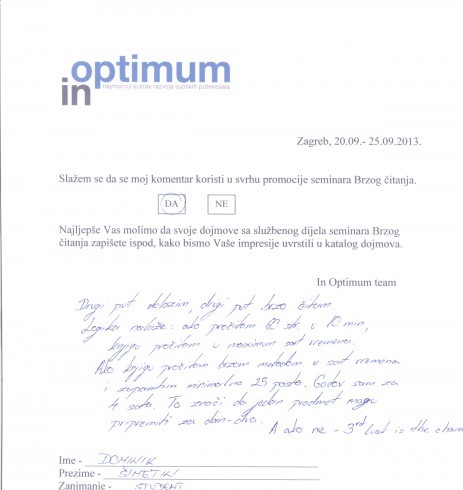 optimum
in
najmoćniji sustav razvoja ljudskih potencijala
Zagreb, 20.09.- 25.09.2013.
Slažem se da se moj komentar koristi u svrhu promocije seminara Brzog čitanja.
DA NE
Najljepše Vas molimo da svoje dojmove sa službenog dijela seminara Brzog
čitanja zapišete ispod, kako bismo Vaše impresije uvrstili u katalog dojmova.
In Optimum team
Drugi put dolazim, drugi put brzo čitam
Logika nalaže: ako pročitam 60 str. u 10 min,
knjigu pročitam u maximum sat vremena.
Ako knjigu pročitam brzom metodom u sat vremena
i zapamtim minimalno 25 posto. Gotov sam za
4 sata. To znači da jedan predmet mogu
pripremiti za dan-dva.
A ako ne - 3rd luck is the charm
Ime - DOMINIK
Prezime - ŠIMETIĆ
Zanimanje - STUDENT